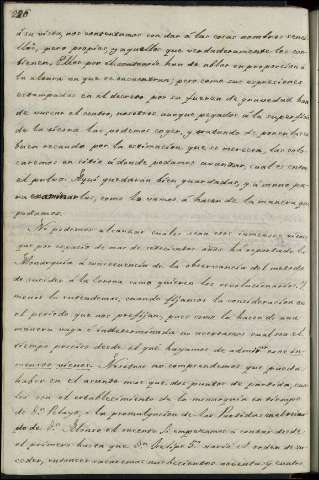 226
á su vista, nos contentamos con dar á las cosas nombres senci-
llos, pero propios, y aquellos que verdaderamente les con-
vienen. Ellos por el contrario han de hablar en proporcion á
la altura en que se encuentran; pero como sus expresiones
estampadas en el decreto por su fuerza de gravedad han
de buscar el centro, nosotros aunque pegados á la superficie
de la tierra las podemos coger, y tratando de ponerlas á
buen recaudo por la estimacion que se merecen, las colo-
caremos en sitio á donde podamos alcanzar, cual es este
el pulso. Aquí quedarán bien guardadas, y á mano pa-
ra examinarlas, como lo vamos á hacer de la manera que
podamos.
No podemos alcanzar cuales sean esos inmensos bienes
que por espacio de mas de setecientos años ha reportado la
Monarquía á consecuencia de la observancia del metodo
de suceder á la corona como quieren los revolucionarios. Y
menos lo entendemos, cuando fijamos la consideracion en
el periodo que nos prefijan, pues como lo hacen de una
manera vaga é indeterminada no acertamos cual sea el
tiempo preciso desde el que hayamos de admirar esos in-
mensos bienes. Nosotros no comprendemos que pueda
haber en el asunto mas que dos puntos de partida, cua-
les son el establecimiento de la monarquía en tiempo
de Dn. Pelayo, ó la promulgacion de las Partidas en el reina-
do de Dn. Alonso el decimo. Si empezamos á contar desde
el primero hasta que Dn. Felipe 5º varió el orden de su-
ceder, entonces sacaremos novecientos noventa y cuatro